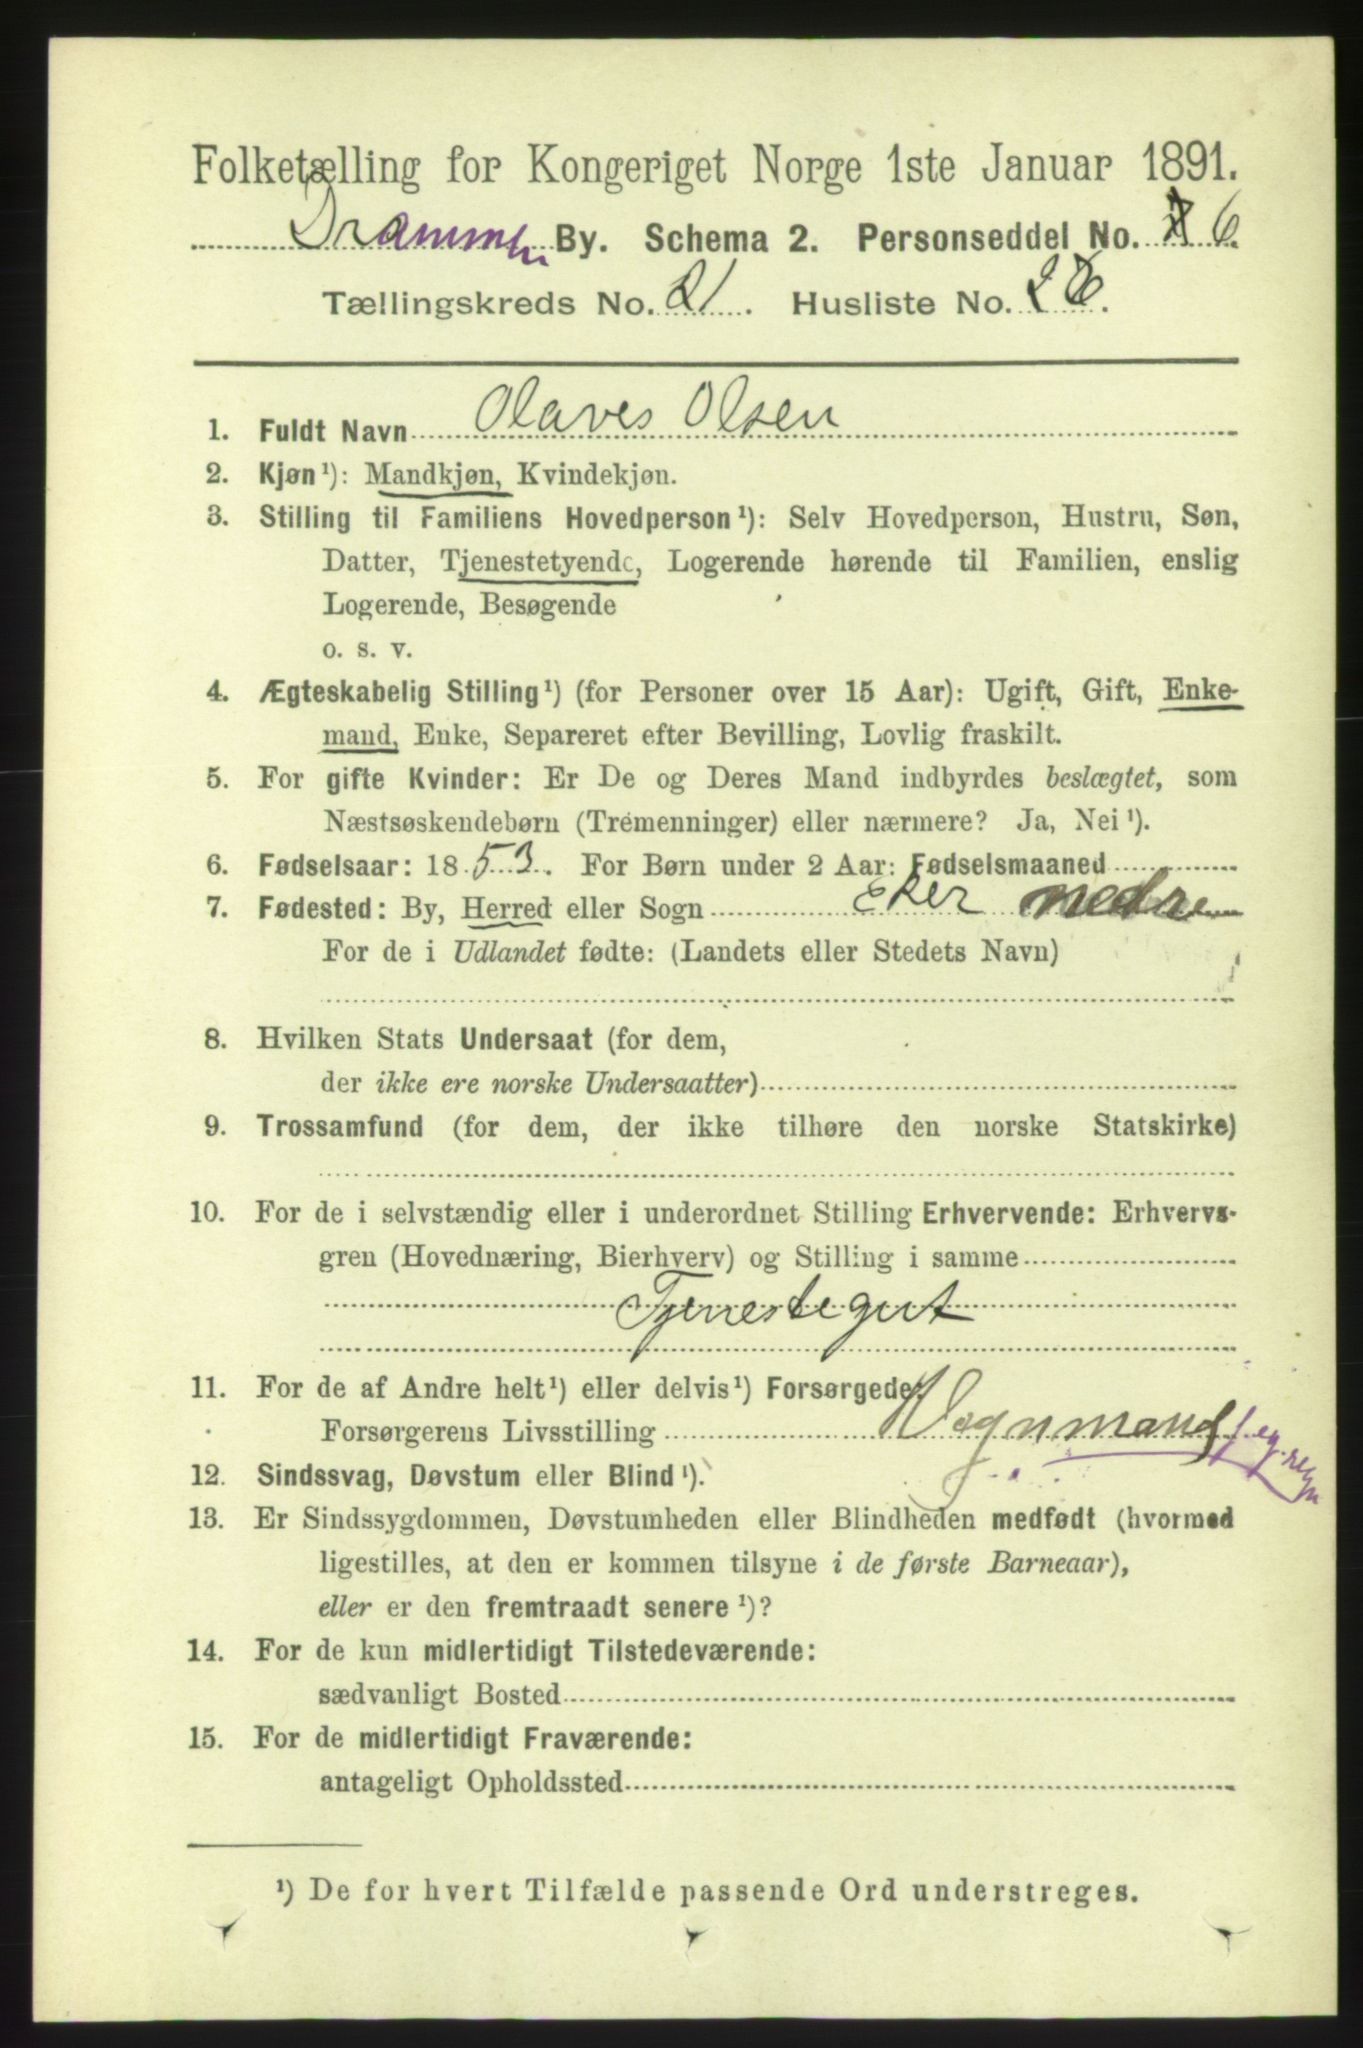 Folketælling for Kongeriget Norge 1ste Januar 1891.
Drammen By. Schema 2. Personseddel No. 6.
Tællingskreds No. 21. Husliste No. 26.
1. Fuldt Navn Olaves Olsen
2. Kjøn¹): Mandkjøn, Kvindekjøn.
3. Stilling til Familiens Hovedperson¹): Selv Hovedperson, Hustru, Søn,
Datter, Tjenestetyende, Logerende hørende til Familien, enslig
Logerende, Besøgende
o. s. v.
4. Ægteskabelig Stilling¹) (for Personer over 15 Aar): Ugift, Gift, Enke-
mand, Enke, Separeret efter Bevilling, Lovlig fraskilt.
5. For gifte Kvinder: Er De og Deres Mand indbyrdes beslægtet, som
Næstsøskendebørn (Tremenninger) eller nærmere? Ja, Nei¹).
6. Fødselsaar: 1853. For Børn under 2 Aar: Fødselsmaaned
7. Fødested: By, Herred eller Sogn Eker nedre
For de i Udlandet fødte: (Landets eller Stedets Navn)
8. Hvilken Stats Undersaat (for dem,
der ikke ere norske Undersaatter)
9. Trossamfund (for dem, der ikke tilhøre den norske Statskirke)
10. For de i selvstændig eller i underordnet Stilling Erhvervende: Erhvervs-
gren (Hovednæring, Bierhverv) og Stilling i samme
Tjenestegut
11. For de af Andre helt¹) eller delvis¹) Forsørgede:
Forsørgerens Livsstilling Vognmand
12. Sindssvag, Døvstum eller Blind¹).
13. Er Sindssygdommen, Døvstumheden eller Blindheden medfødt (hvormed
ligestilles, at den er kommen tilsyne i de første Barneaar),
eller er den fremtraadt senere¹)?
14. For de kun midlertidigt Tilstedeværende:
sædvanligt Bosted
15. For de midlertidigt Fraværende:
antageligt Opholdssted
¹) De for hvert Tilfælde passende Ord understreges.